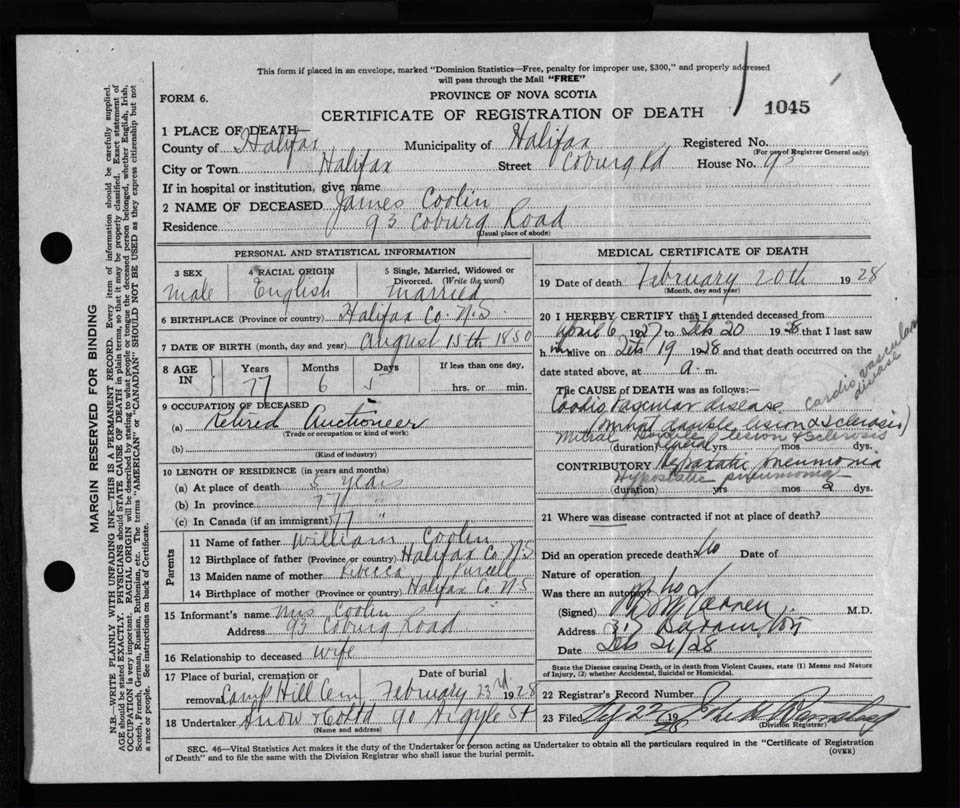 This form if placed in an envelope, marked "Dominion Statistics—Free, penalty for improper use, $300," and properly addressed
will pass through the Mail "FREE"
FORM 6.
PROVINCE OF NOVA SCOTIA
CERTIFICATE OF REGISTRATION OF DEATH
1045
1 PLACE OF DEATH—
County of Halifax Municipality of Halifax Registered No.
(For use of Registrar General only)
City or Town Halifax Street Coburg Rd House No. 93
If in hospital or institution, give name
2 NAME OF DECEASED James Coolin
Residence 93 Coburg Road
(Usual place of abode)
PERSONAL AND STATISTICAL INFORMATION
3 SEX 4 RACIAL ORIGIN 5 Single, Married, Widowed or Divorced. (Write the word)
Male English Married
6 BIRTHPLACE (Province or country) Halifax Co. N.S.
7 DATE OF BIRTH (month, day and year) August 15th 1850
8 AGE IN Years Months Days If less than one day,
77 6 5 hrs. or min.
9 OCCUPATION OF DECEASED
(a) Retired Auctioneer
(Trade or occupation or kind of work)
(b)
(Kind of industry)
10 LENGTH OF RESIDENCE (in years and months)
(a) At place of death 5 years
(b) In province 77 "
(c) In Canada (if an immigrant) 77 "
Parents
11 Name of father William Coolin
12 Birthplace of father (Province or country) Halifax Co. N.S.
13 Maiden name of mother Rebecca Purcell
14 Birthplace of mother (Province or country) Halifax Co. N.S
15 Informant's name Mrs Coolin
Address 93 Coburg Road
16 Relationship to deceased Wife
17 Place of burial, cremation or removal Camp Hill Cem Date of burial February 23rd 1928
18 Undertaker Snow & Co Ltd 90 Argyle St
(Name and address)
MEDICAL CERTIFICATE OF DEATH
19 Date of death February 20th 1928
(Month, day and year)
20 I HEREBY CERTIFY that I attended deceased from
April 6 1927 to Feb 20 1928 that I last saw
him alive on Feb 19 1928 and that death occurred on the
date stated above, at a. m.
The CAUSE of DEATH was as follows:—
Cardio Vascular disease cardio vascular disease
(Mitral double lesion & sclerosis)
Mitral Double lesion & sclerosis
(duration) Several yrs mos dys.
CONTRIBUTORY Hypostatic pneumonia
Hypostatic pneumonia
(duration) yrs mos 2 dys.
21 Where was disease contracted if not at place of death?
Did an operation precede death? No Date of
Nature of operation
Was there an autopsy? No
(Signed) M.D.
Address 317 Barrington
Date Feb 21/28
State the Disease causing Death, or in death from Violent Causes, state (1) Means and Nature
of Injury, (2) whether Accidental, Suicidal or Homicidal.
22 Registrar's Record Number
23 Filed 22 1928
(Division Registrar)
SEC. 46—Vital Statistics Act makes it the duty of the Undertaker or person acting as Undertaker to obtain all the particulars required in the "Certificate of Registration
of Death" and to file the same with the Division Registrar who shall issue the burial permit.
(OVER)
MARGIN RESERVED FOR BINDING
N.B.—WRITE PLAINLY WITH UNFADING INK—THIS IS A PERMANENT RECORD. Every item of information should be carefully supplied.
AGE should be stated EXACTLY. PHYSICIANS should STATE CAUSE OF DEATH in plain terms, so that it may be properly classified. Exact statement of
OCCUPATION is very important. RACIAL ORIGIN will be described by stating to what people or tongue the deceased person belonged, whether English, Irish,
Scotch, French, German, Russian, Ruthenian, etc. The terms "AMERICAN" or "CANADIAN" SHOULD NOT BE USED as they express citizenship but not
a race or people. See instructions on back of Certificate.